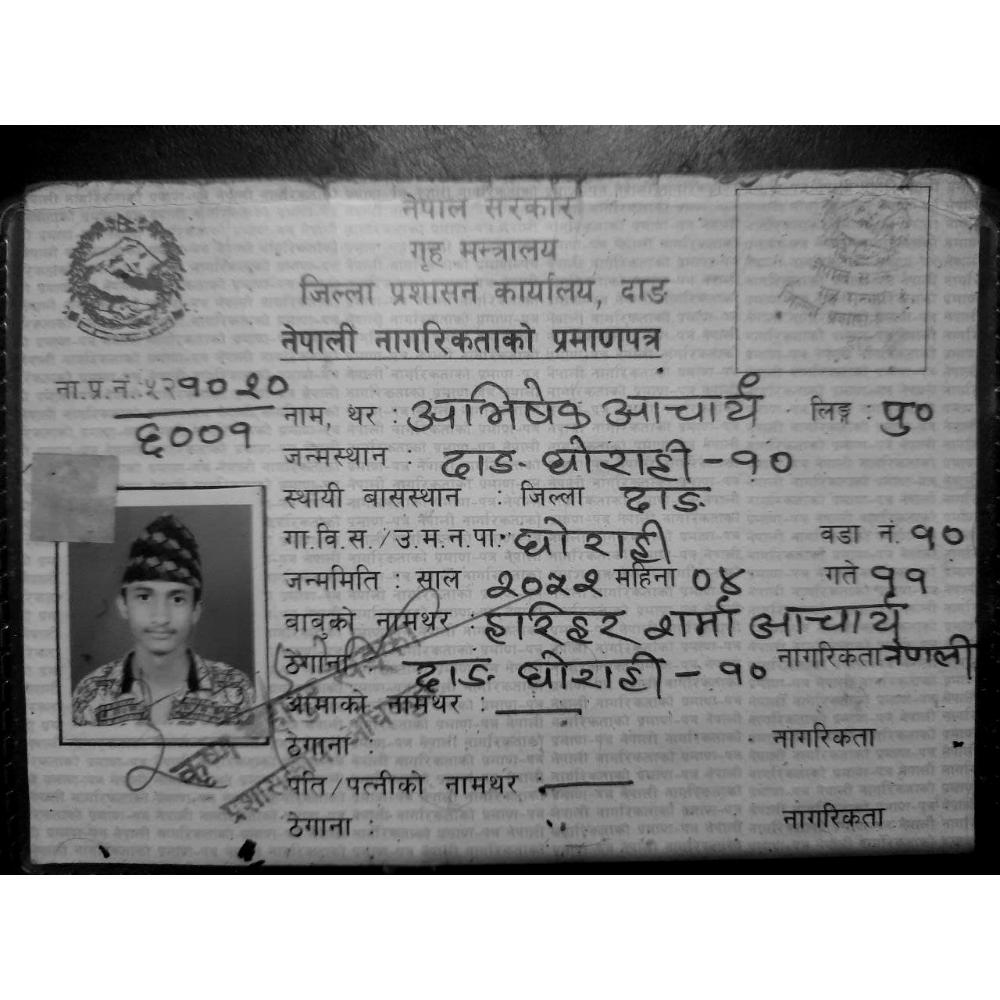 नेपाल सरकार
गृह मन्त्रालय
जिल्ला प्रशासन कार्यालय, दाङ
नेपाली नागरिकताको प्रमाणपत्र
ना.प्र.नं.:५२१०२०
६००१
नाम, थर : अभिषेक आचार्य लिङ्ग : पु०
जन्मस्थान : दाङ घोराही - १०
स्थायी बासस्थान : जिल्ला दाङ
गा.वि.स./उ.म.न.पा. घोराही वडा नं. १०
जन्ममिति : साल २०५२ महिना ०४ गते ११
बाबुको नामथर : हरिहर शर्मा आचार्य
ठेगाना : दाङ घोराही - १० नागरिकता नेपाली
आमाको नामथर :
ठेगाना : नागरिकता
पति/पत्नीको नामथर :
ठेगाना : नागरिकता